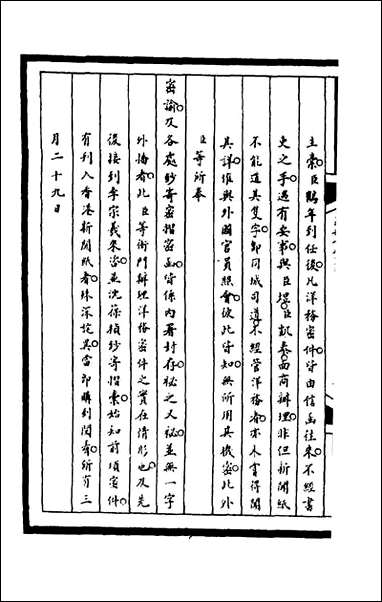 主索臣鶴年到任後凡洋務密件皆由信函往來不經書
吏之手遇有要事與臣煜臣凱泰面商辦理非但新聞紙
不能道其隻字即同城司道不經管洋務者亦未嘗得聞
其詳惟與外國官員照會彼此皆知無所用其機密此外
臣等所奉
密諭及各處鈔寄密摺密函皆係內署封存祕之又祕並無一字
外播者此臣等衙門辦理洋務密件之實在情形也及先
後接到李宗羲來咨並沈葆楨鈔寄摺索始知前項密件
有刊入香港新聞紙者殊深詫異當即購到閱看所有三
月二十九日